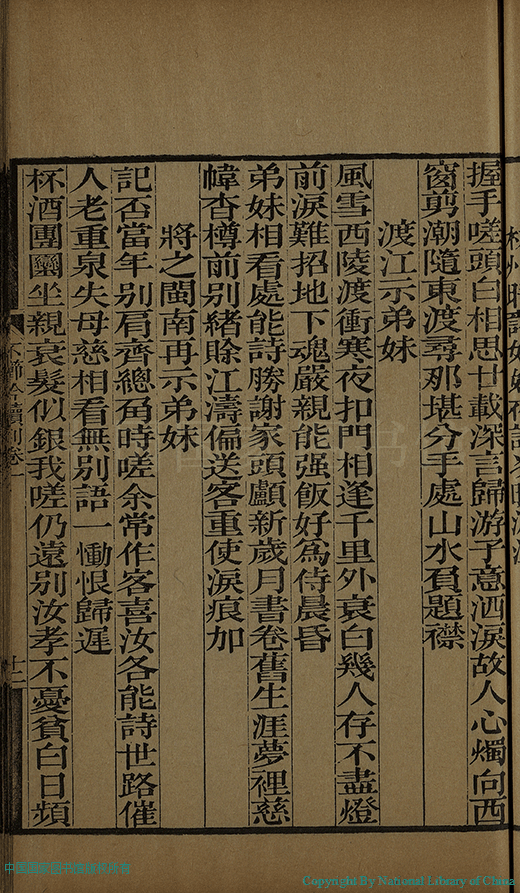 握手嗟頭白相思廿載深言歸游子意洒淚故人心燭向西
窗剪潮隨東渡尋那堪分手處山水負題襟
渡江示弟妹
風雪西陵渡衝寒夜扣門相逢千里外衰白幾人存不盡燈
前淚難招地下魂嚴親能强飯好為侍晨昏
弟妹相看處能詩勝謝家頭顱新歲月書卷舊生涯夢裡慈
幃杳樽前別緒賒江濤偏送客重使淚痕加
將之閩南再示弟妹
記否當年別肩齊總角時嗟余常作客喜汝各能詩世路催
人老重泉失母慈相看無別語一慟恨歸遲
杯酒團圞坐親衰髮似銀我嗟仍遠別汝孝不憂貧白日頻
續刻卷一
十二
Copyright By National Library of China